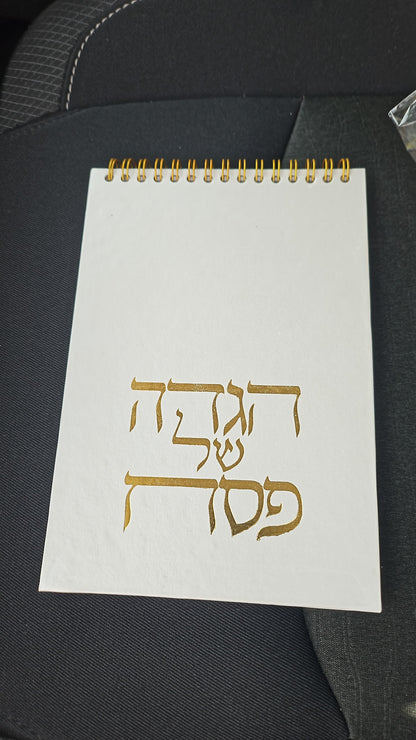 הגדה
של
פסח